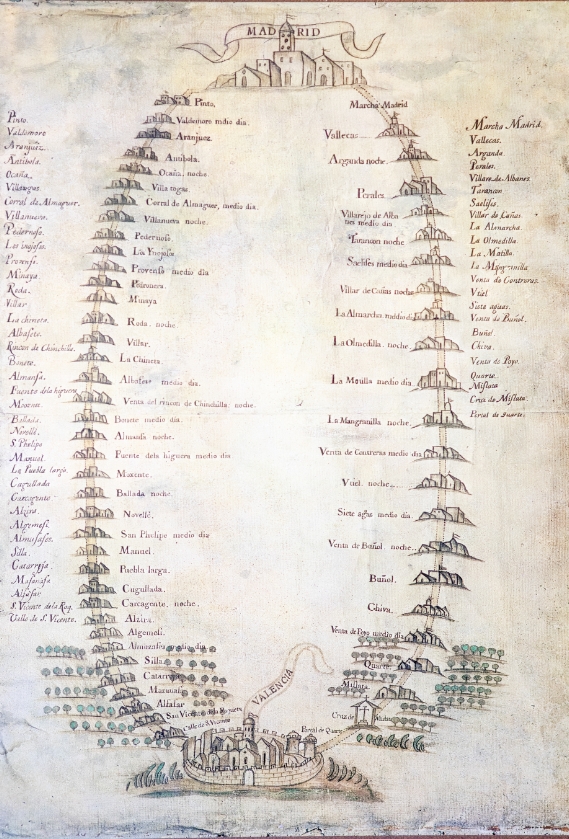 MADRID
Pinto,
Valdemoro mdio dia.
Aranjuez.
Antibola.
Ocaña, noche.
Villa togas
Corral de Almaguer, medio dia.
Villanueva noche.
Pedernoso.
Los Ynojosos
Provensa medio dia
Minaya
Roda. noche.
Villar.
La Chineta
Albasete medio dia.
Venta del rincon de Chinchilla. noche.
Bonete medio dia.
Almansa noche.
Fuente dela higuera medio dia
Moxente.
Ballada noche.
Novellè.
San Phelipe medio dia
Manuel.
Puebla larga.
Cugullada.
Carcagente, noche.
Alzira.
Algemesi.
Almusafes medio dia
Silla.
Catarroja
Masanasa
Alfafar
San Vicente dela Roqueta
Calle de S. Vicente
Marcha Madrid
Vallecas
Arganda noche.
Perales
Villarejo de Alba
nes medio dia
Tarancon noche
Saelises medio dia
Villar de Cañas noche
La Almarcha medio dia
La Olmedilla. noche.
La Motilla medio dia
La Mingranilla noche.
Venta de Contreras medio dia
Vtiel. noche
Siete aguas medio dia.
Venta de Buñol. noche
Buñol.
Chiva.
Venta de Poyo medio dia
Quarte.
Mislata
Cruz de Mislata
Portal de Quarte
VALENCIA
Pinto.
Valdemoro
Aranjuez.
Antibola.
Ocaña.
Villatogas
Corral de Almaguer.
Villanueva.
Pedernoso.
Los inojosos.
Provensa.
Minaya
Roda.
Villar
La chineta
Albasete.
Rincon de Chinchilla.
Bonete.
Almansa.
Fuente dela higuera
Moxent.
Ballada.
Novellè.
S. Phelipe
Manuel.
La Puebla larga.
Cugullada
Carcagente.
Alzira.
Algemesi.
Almusafes.
Silla.
Catarroja.
Masanasa
Alfafar
S. Vicente dela Roq.
Calle de S. Vicente.
Marcha Madrid.
Vallecas.
Arganda
Perales.
Villare. de Albanes
Tarancon
Saelisis.
Villar de Cañas
La Almarcha.
La Olmedilla.
La Motilla.
La Mingranilla
Venta de Contreras.
Vtiel
Siete aguas.
Venta de Buñol.
Buñol.
Chiva.
Venta de Poyo.
Quarte.
Mislata
Cruz de Mislata.
Portal de Quarte.